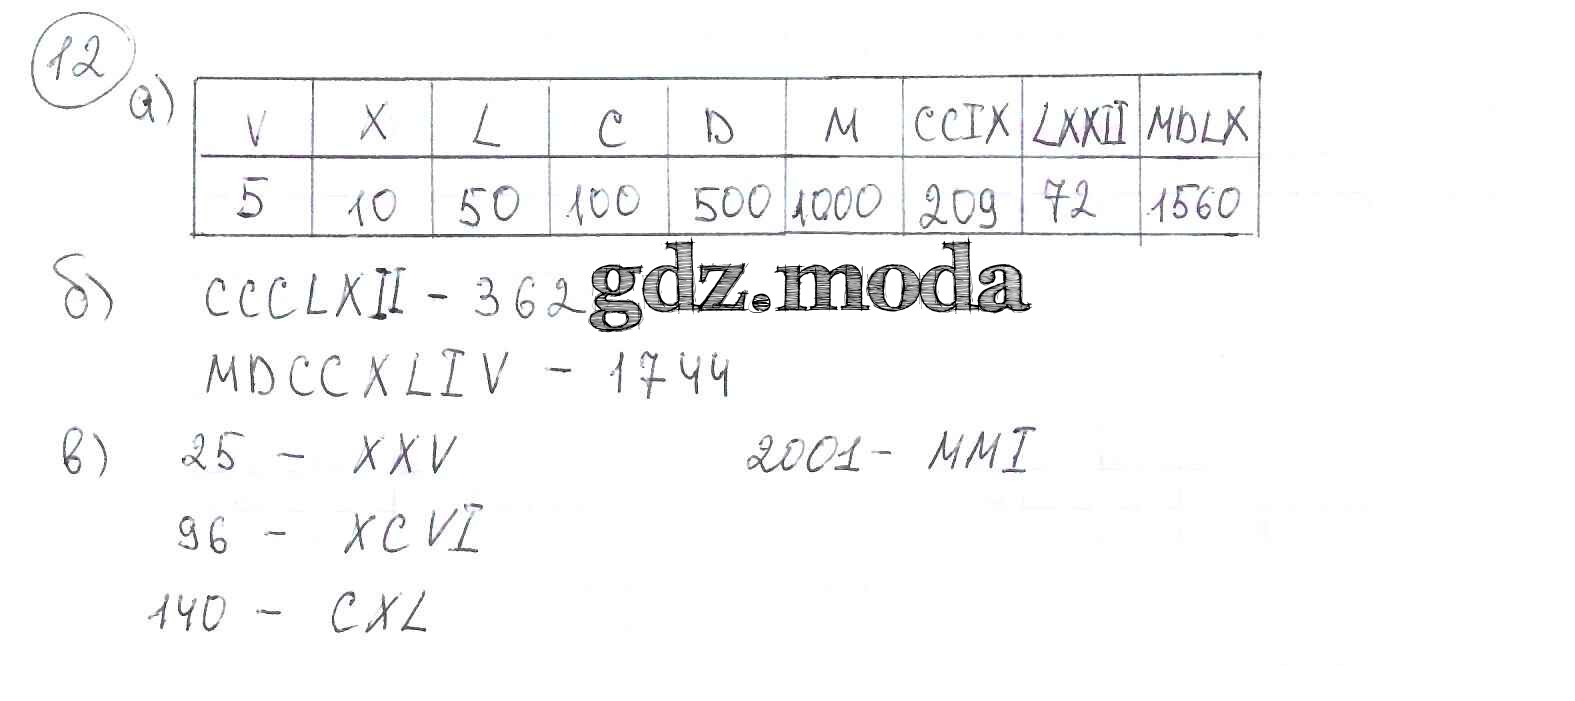 12
а)
V X L C D M CCIX LXXII MDLX
5 10 50 100 500 1000 209 72 1560
б) CCCLXII - 362
gdz.moda
MDCCXLIV - 1744
в) 25 - XXV 2001 - MMI
96 - XCVI
140 - CXL